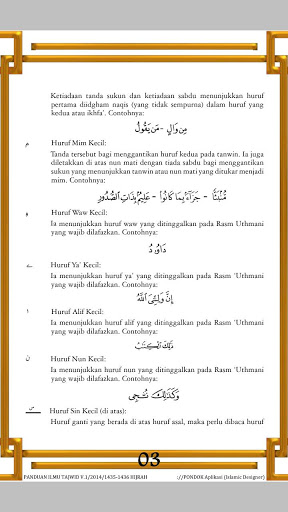 Ketiadaan tanda sukun dan ketiadaan sabdu menunjukkan huruf
pertama diidgham naqis (yang tidak sempurna) dalam huruf yang
kedua atau ikhfa'. Contohnya:
مِن وَالٍ - مَن يَقُولُ
م Huruf Mim Kecil:
Tanda tersebut bagi menggantikan huruf kedua pada tanwin. Ia juga
diletakkan di atas nun mati dengan tiada sabdu bagi menggantikan
sukun yang menunjukkan tanwin atau nun mati yang ditukar menjadi
mim. Contohnya:
مُّنۢبَثًّا - جَزَآءَۢ بِمَا كَانُوا۟ - عَلِيمٌۢ بِذَاتِ ٱلصُّدُورِ
و Huruf Waw Kecil:
Ia menunjukkan huruf waw yang ditinggalkan pada Rasm 'Uthmani
yang wajib dilafazkan. Contohnya:
دَاوُۥدُ
ے Huruf Ya' Kecil:
Ia menunjukkan huruf ya' yang ditinggalkan pada Rasm 'Uthmani
yang wajib dilafazkan. Contohnya:
إِنَّ وَلِـِّۧىَ ٱللَّهُ
ا Huruf Alif Kecil:
Ia menunjukkan huruf alif yang ditinggalkan pada Rasm 'Uthmani
yang wajib dilafazkan. Contohnya:
ذَٰلِكَ ٱلْكِتَٰبُ
ن Huruf Nun Kecil:
Ia menunjukkan huruf nun yang ditinggalkan pada Rasm 'Uthmani
yang wajib dilafazkan. Contohnya:
وَكَذَٰلِكَ نُـۨجِى
س Huruf Sin Kecil (di atas):
Huruf ganti yang berada di atas huruf asal, maka perlu dibaca huruf
03
PANDUAN ILMU TAJWID V.1/2014/1435-1436 HIJRAH
://PONDOK Aplikasi (Islamic Designer)